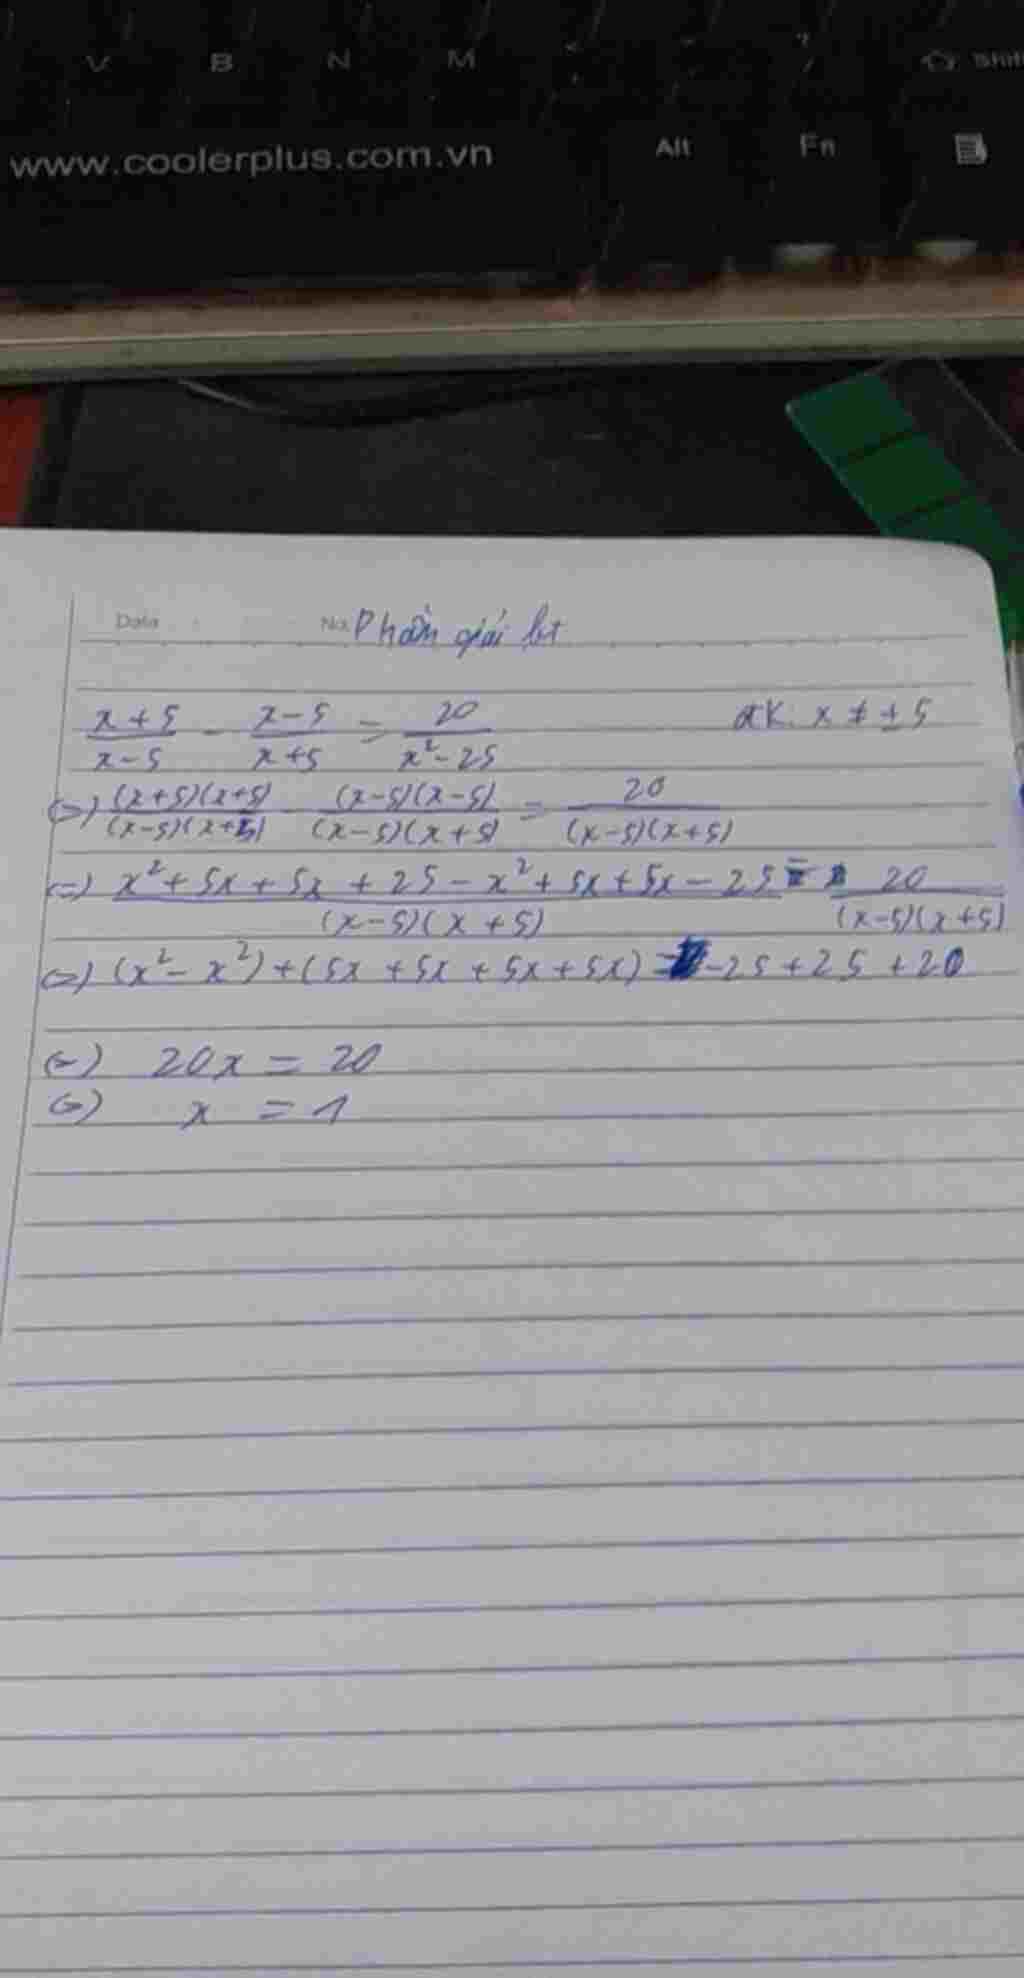 V B N M < , ? / Shift
www.coolerplus.com.vn Alt Fn
Date No. Phần giải bt
x+5/x-5 - x-5/x+5 = 20/x²-25 đk: x ≠ ±5
(=) (x+5)(x+5)/(x-5)(x+5) - (x-5)(x-5)/(x-5)(x+5) = 20/(x-5)(x+5)
(=) x²+5x+5x+25-x²+5x+5x-25/(x-5)(x+5) = 20/(x-5)(x+5)
(=) (x²-x²)+(5x+5x+5x+5x) = -25+25+20
(=) 20x = 20
(=) x = 1